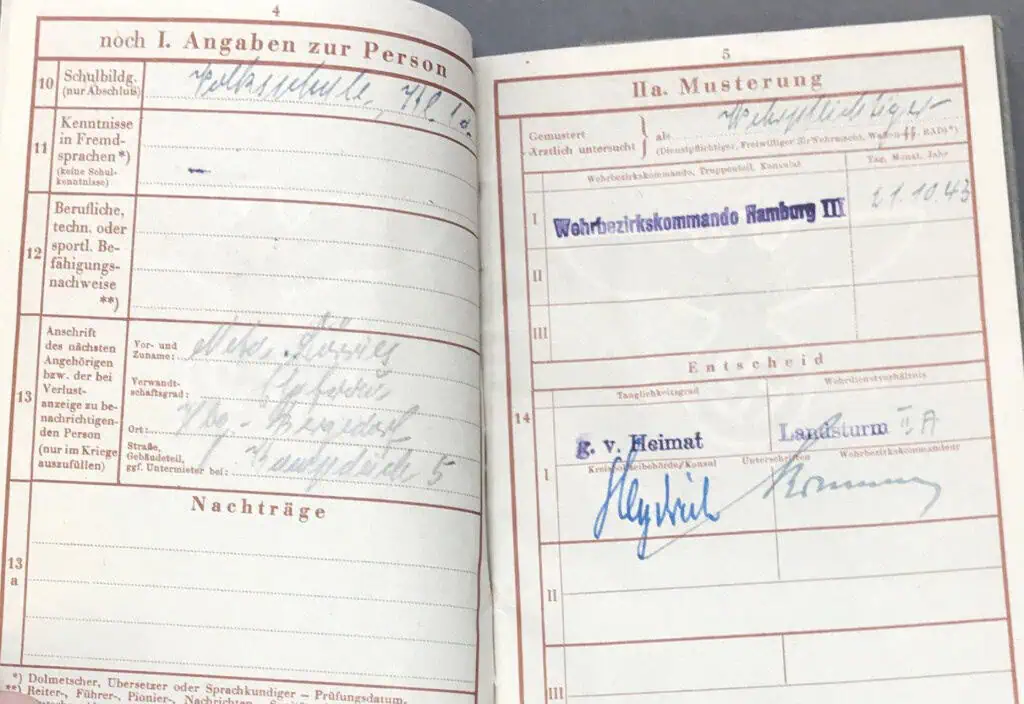 4
noch I. Angaben zur Person
10
Schulbildg.
(nur Abschluß)
Volksschule, Kl.
11
Kenntnisse
in Fremd-
sprachen*)
(keine Schul-
kenntnisse)
12
Berufliche,
techn. oder
sportl. Be-
fähigungs-
nachweise
**)
13
Anschrift
des nächsten
Angehörigen
bzw. der bei
Verlust-
anzeige zu be-
nachrichtigen-
den Person
(nur im Kriege
auszufüllen)
Vor- und
Zuname:
Verwandt-
schaftsgrad:
Ehefrau
Ort:
Hbg.-Bergedorf
Straße,
Gebäudeteil,
ggf. Untermieter bei:
5
Nachträge
13
a
*) Dolmetscher, Übersetzer oder Sprachkundiger – Prüfungsdatum.
**) Reiter-, Führer-, Pionier-, Nachrichten-
5
IIa. Musterung
Gemustert
Ärztlich untersucht
als
Wehrpflichtiger
(Dienstpflichtiger, Freiwilliger für Wehrmacht, Waffen-SS, RAD*)
Wehrbezirkskommando, Truppenteil, Konsulat
Tag, Monat, Jahr
I
Wehrbezirkskommando Hamburg III
21.10.43
II
III
Entscheid
14
Tauglichkeitsgrad
Wehrdienstverhältnis
g. v. Heimat
Landsturm II A
I
Kreispolizeibehörde/Konsul
Unterschriften
Wehrbezirkskommandeur
II
III